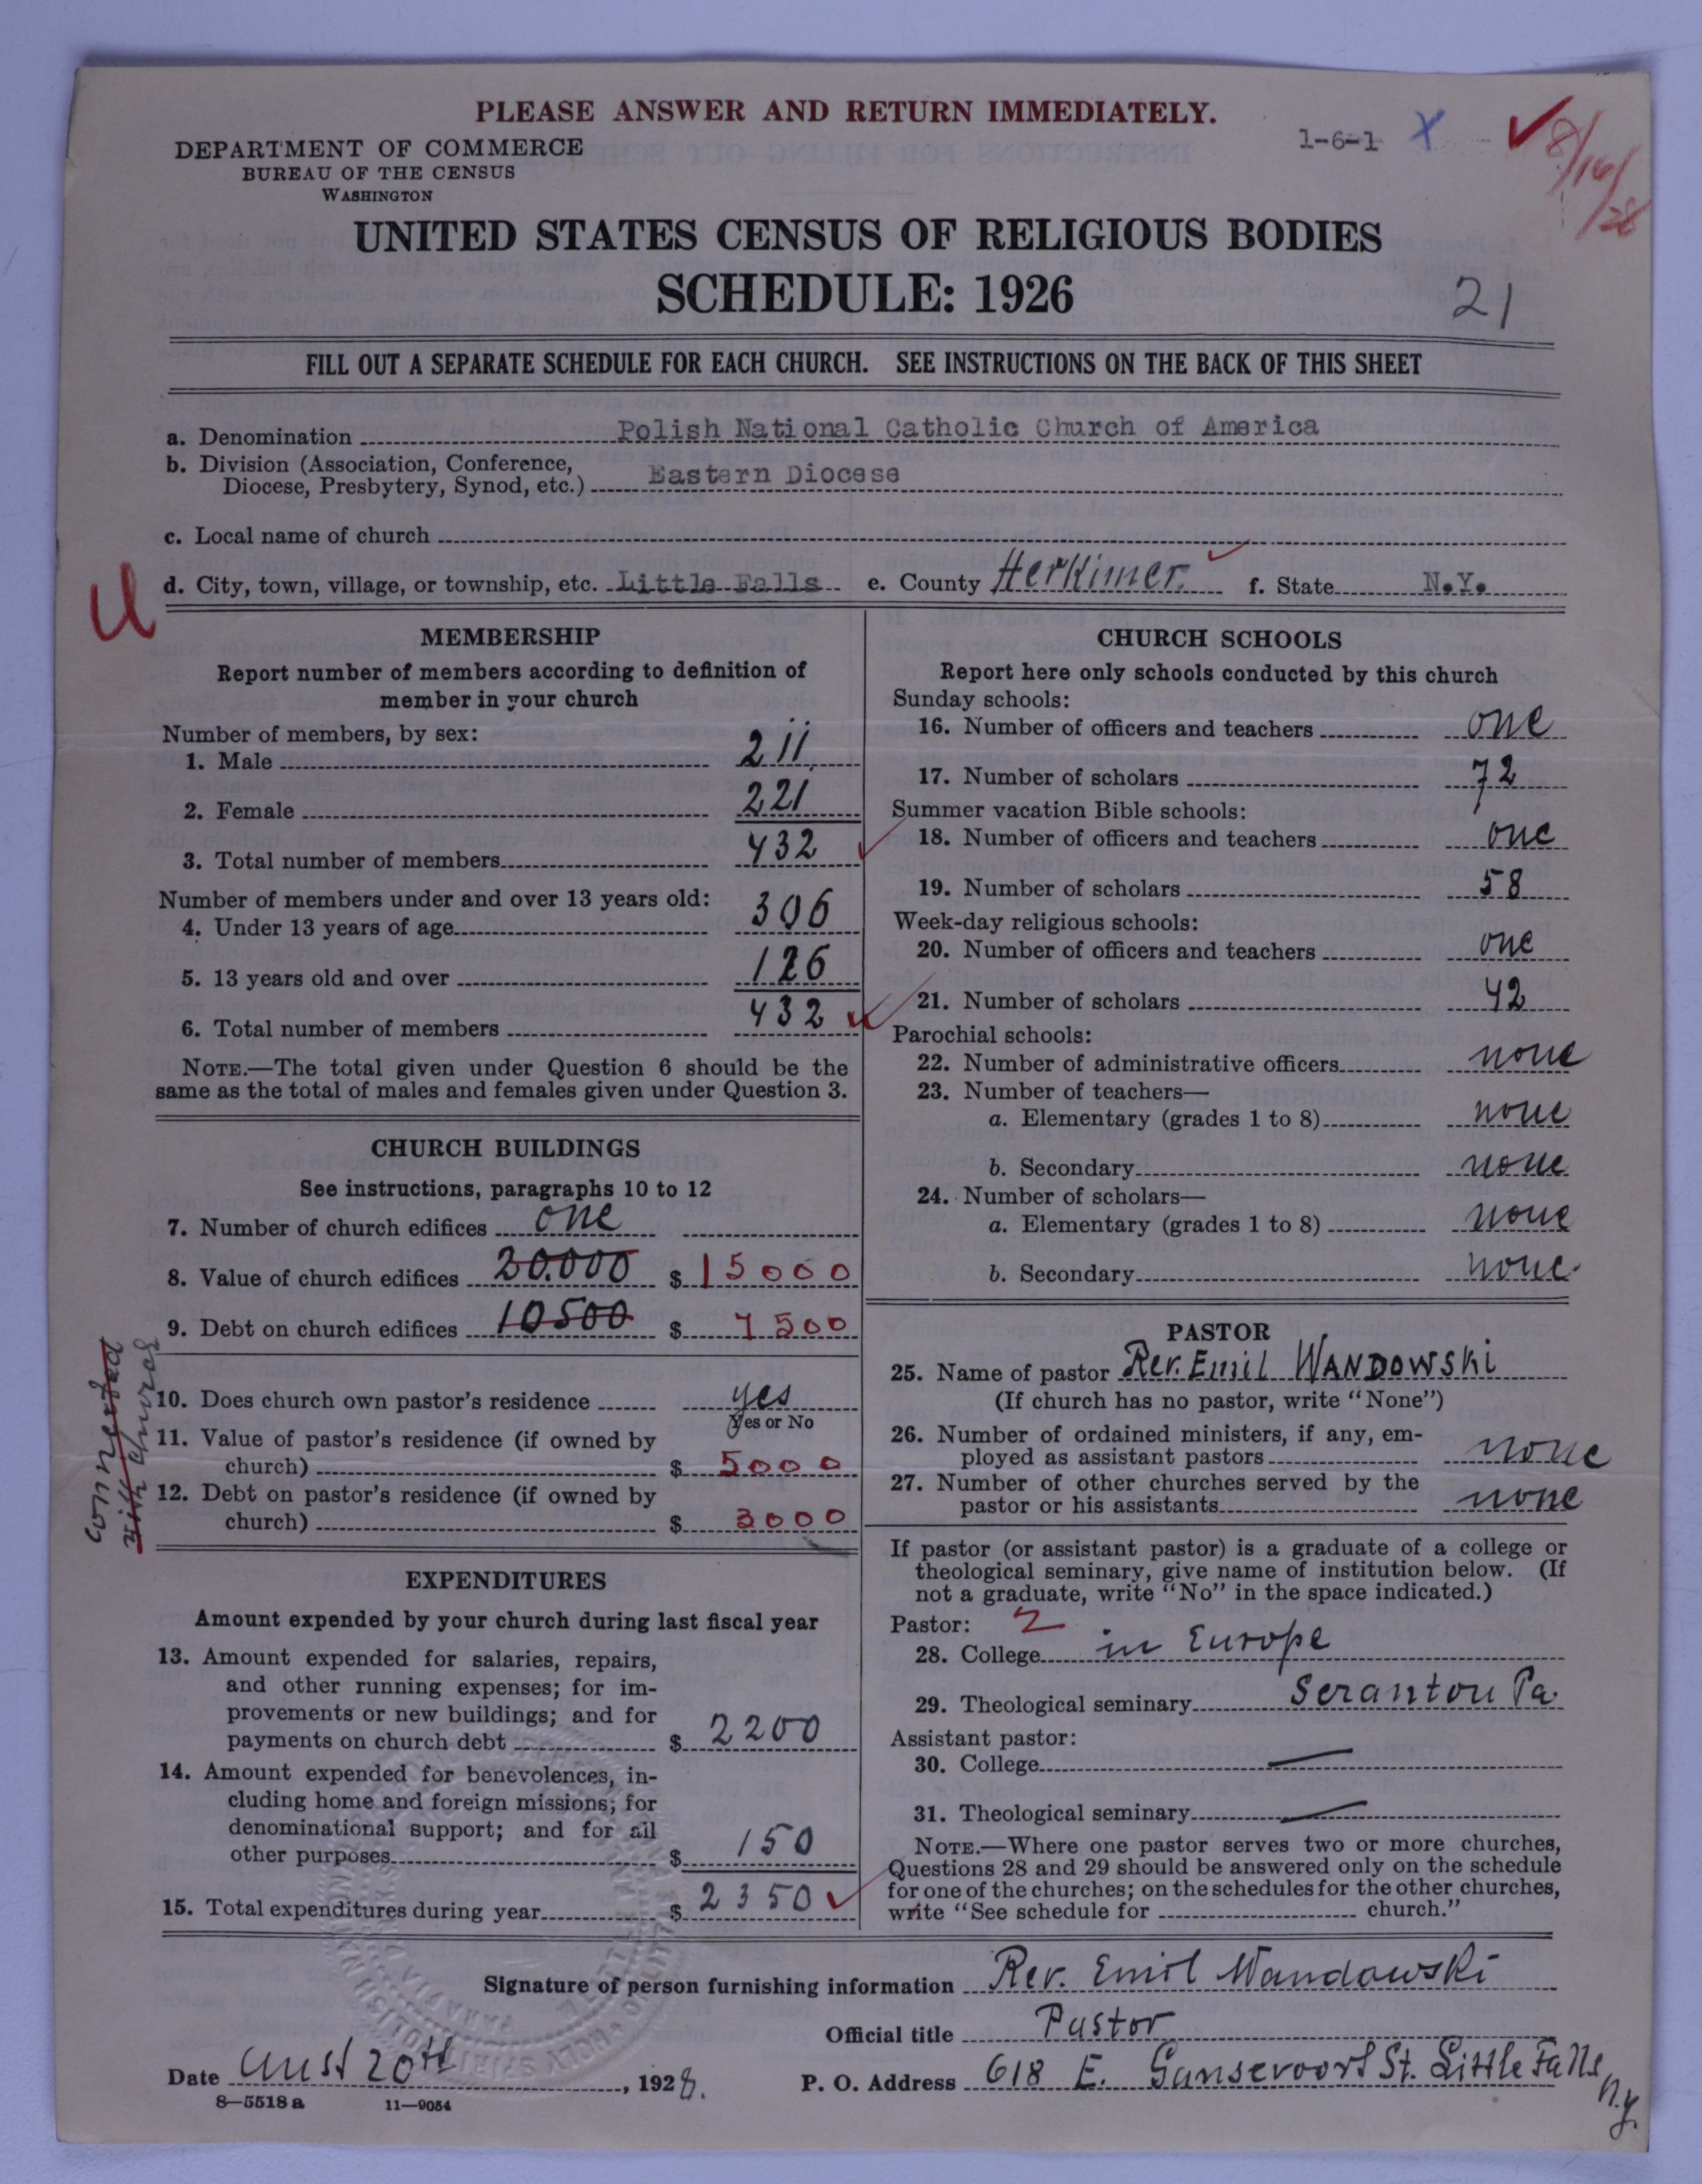 PLEASE ANSWER AND RETURN IMMEDIATELY.
1-6-1 X
8/16/28
DEPARTMENT OF COMMERCE
BUREAU OF THE CENSUS
WASHINGTON
UNITED STATES CENSUS OF RELIGIOUS BODIES
SCHEDULE: 1926
21
FILL OUT A SEPARATE SCHEDULE FOR EACH CHURCH. SEE INSTRUCTIONS ON THE BACK OF THIS SHEET
a. Denomination Polish National Catholic Church of America
b. Division (Association, Conference,
Diocese, Presbytery, Synod, etc.) Eastern Diocese
c. Local name of church
U
d. City, town, village, or township, etc. Little Falls e. County Herkimer. f. State N.Y.
MEMBERSHIP
Report number of members according to definition of
member in your church
Number of members, by sex:
1. Male 211
2. Female 221
3. Total number of members 432
Number of members under and over 13 years old:
4. Under 13 years of age 306
5. 13 years old and over 126
6. Total number of members 432
NOTE.—The total given under Question 6 should be the
same as the total of males and females given under Question 3.
CHURCH BUILDINGS
See instructions, paragraphs 10 to 12
7. Number of church edifices one
8. Value of church edifices 20.000 $ 15000
9. Debt on church edifices 10500 $ 7500
10. Does church own pastor's residence yes
Yes or No
11. Value of pastor's residence (if owned by
church) $ 5000
12. Debt on pastor's residence (if owned by
church) $ 3000
connected
with church
EXPENDITURES
Amount expended by your church during last fiscal year
13. Amount expended for salaries, repairs,
and other running expenses; for im-
provements or new buildings; and for
payments on church debt $ 2200
14. Amount expended for benevolences, in-
cluding home and foreign missions; for
denominational support; and for all
other purposes $ 150
15. Total expenditures during year $ 2350
CHURCH SCHOOLS
Report here only schools conducted by this church
Sunday schools:
16. Number of officers and teachers one
17. Number of scholars 72
Summer vacation Bible schools:
18. Number of officers and teachers one
19. Number of scholars 58
Week-day religious schools:
20. Number of officers and teachers one
21. Number of scholars 42
Parochial schools:
22. Number of administrative officers none
23. Number of teachers—
a. Elementary (grades 1 to 8) none
b. Secondary none
24. Number of scholars—
a. Elementary (grades 1 to 8) none
b. Secondary none
PASTOR
25. Name of pastor Rev. Emil WANDOWSKI
(If church has no pastor, write "None")
26. Number of ordained ministers, if any, em-
ployed as assistant pastors none
27. Number of other churches served by the
pastor or his assistants none
If pastor (or assistant pastor) is a graduate of a college or
theological seminary, give name of institution below. (If
not a graduate, write "No" in the space indicated.)
Pastor: 2
28. College in Europe
29. Theological seminary Scranton Pa.
Assistant pastor:
30. College —
31. Theological seminary —
NOTE.—Where one pastor serves two or more churches,
Questions 28 and 29 should be answered only on the schedule
for one of the churches; on the schedules for the other churches,
write "See schedule for church."
Signature of person furnishing information Rev. Emil Wandowski
Official title Pastor
Date Aust 20th, 1928.
P. O. Address 618 E. Gansevoort St. Little Falls, N.Y.
8—5518 a 11—9054